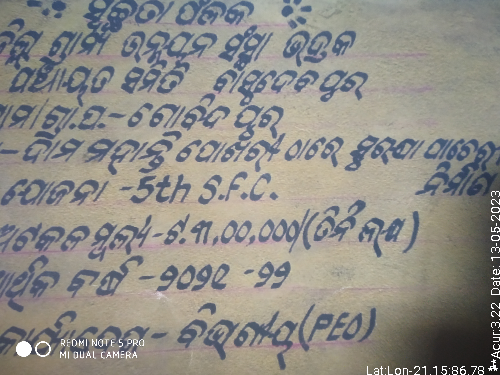 ସ୍ୱଚ୍ଛତା ଫଳକ
ଜିଲ୍ଲା ଗ୍ରାମ୍ୟ ଉନ୍ନୟନ ସଂସ୍ଥା ଭଦ୍ରକ
ପଞ୍ଚାୟତ ସମିତି ବାସୁଦେବପୁର
ଗ୍ରା.ପ.- ଗୋବିନ୍ଦ ପୁର
ମହାନ୍ତି ପୋଖରୀ ଠାରେ
ଯୋଜନା - 5th S.F.C. ନିର୍ମାଣ
ଅଟକଳ ମୂଲ୍ୟ - ଟ.୩,00,000/(ତିନି ଲକ୍ଷ)
ଆର୍ଥିକ ବର୍ଷ - ୨୦୨୧ -୨୨
ବିଭାଗୀୟ (PEO)
REDMI NOTE 5 PRO
MI DUAL CAMERA
Lat:Lon-21.15:86.78
Acur:3.22 Date: 13-05-2023